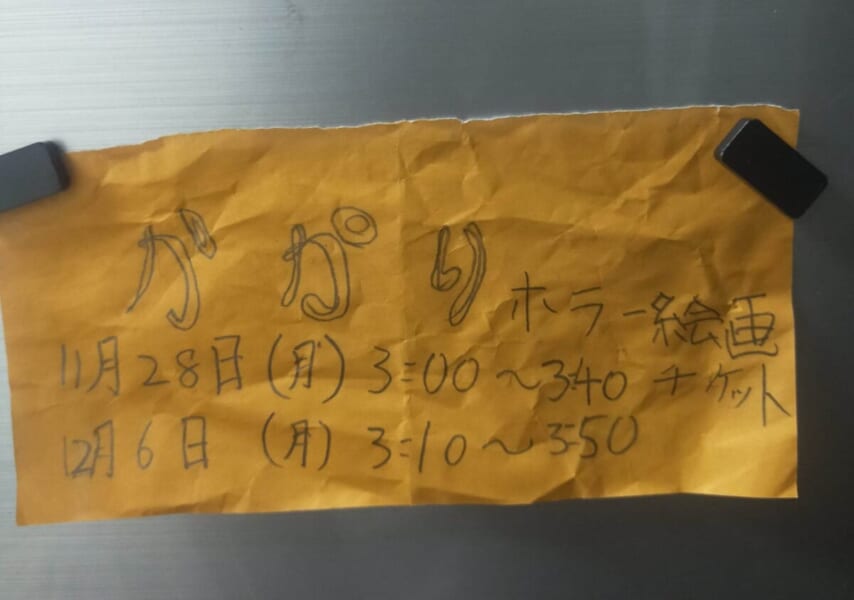 がか゚り
ホラー絵画
11月28日(月)3:00～3:40 チケット
12月6日(月)3:10～3:50